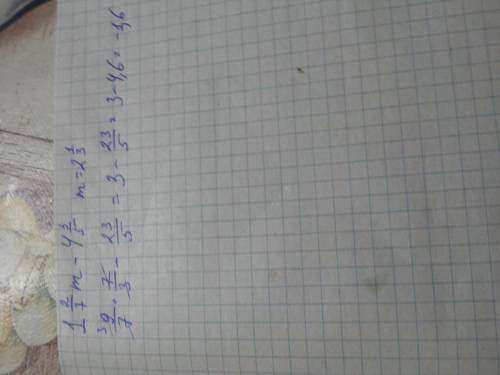 1 2/7 m - 4 3/5   m = 2 1/3
9/7 · 7/3 - 23/5 = 3 - 23/5 = 3 - 4,6 = -3,6